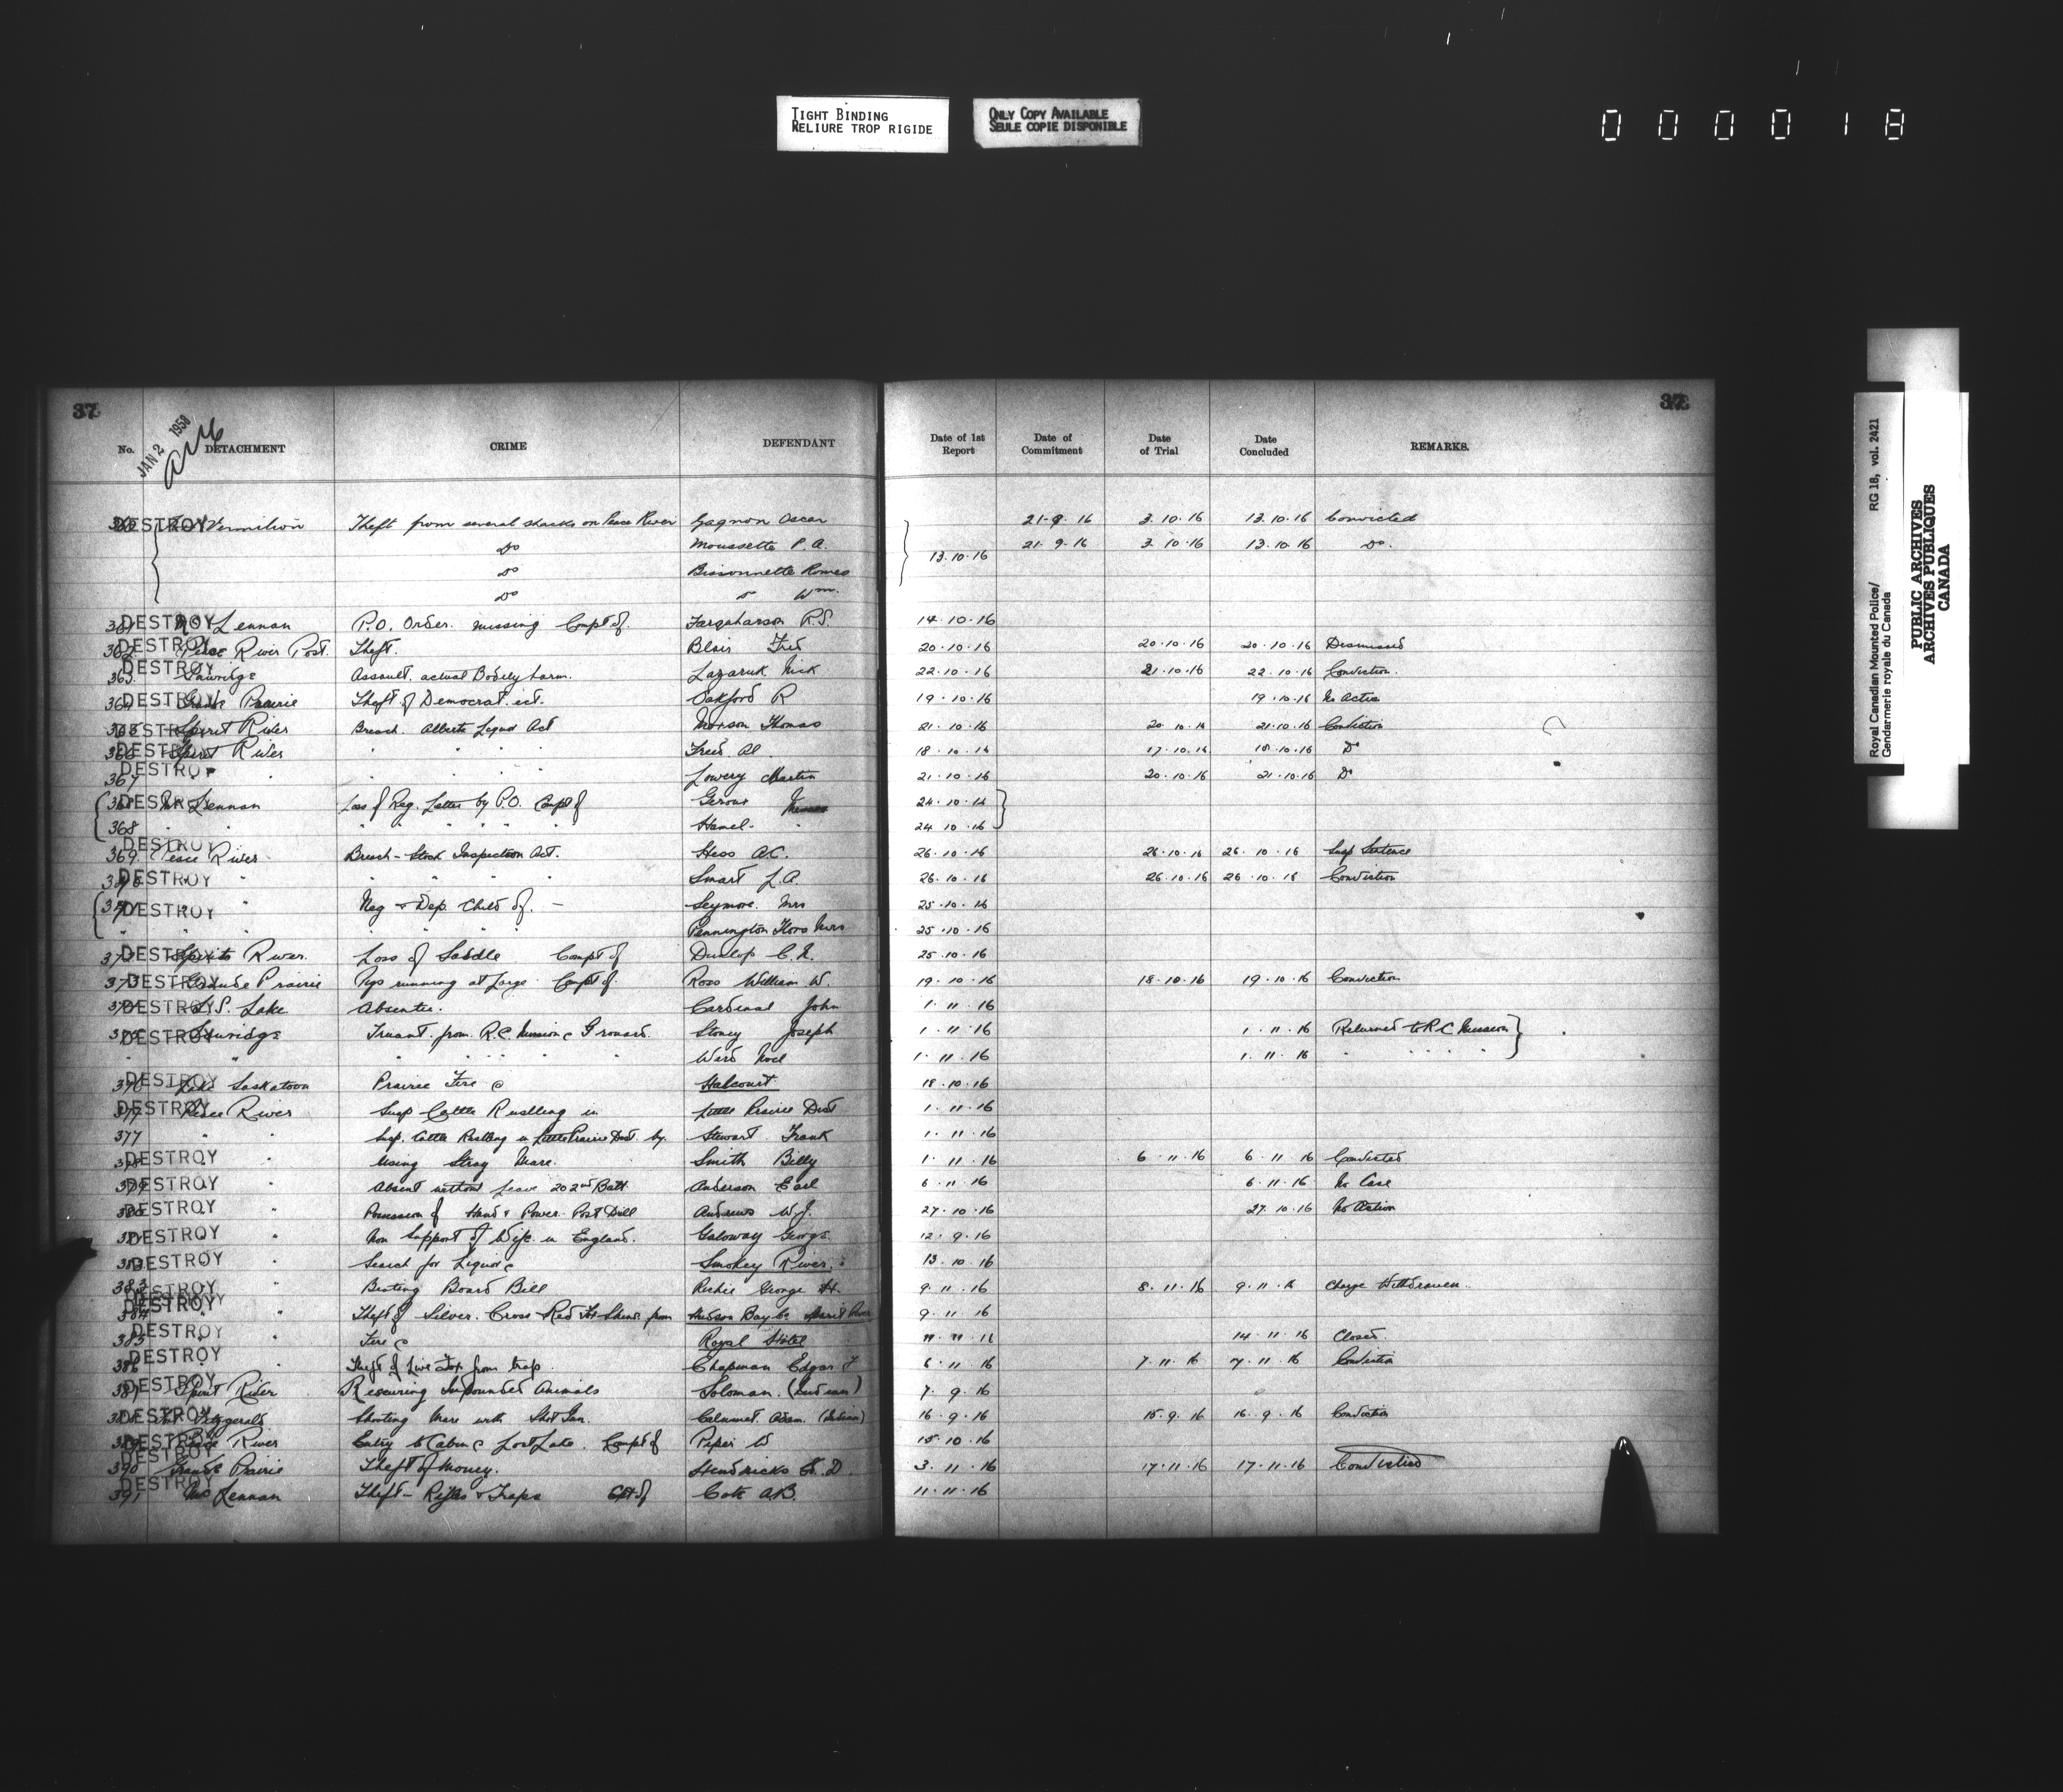 TIGHT BINDING
RELIURE TROP RIGIDE
ONLY COPY AVAILABLE
SEULE COPIE DISPONIBLE
000018
37 37
JAN 2 1958
No. DETACHMENT CRIME DEFENDANT Date of 1st Report Date of Commitment Date of Trial Date Concluded REMARKS.
DESTROY Vermilion Theft from several shacks on Peace River Gagnon Oscar 21-9-16 3.10.16 13.10.16 Convicted
Do Moussette P.A. 21.9.16 3.10.16 13.10.16 Do.
Do Bissonnette Romeo 13.10.16
Do Do Wm.
361 DESTROY McLennan P.O. Order. missing Compt of. Farquharson R.S. 14.10.16
362 DESTROY Peace River Post. Theft. Blair Fred 20.10.16 20.10.16 20.10.16 Dismissed
363. DESTROY Sawridge Assault. actual Bodily harm. Lazaruk Nick 22.10.16 21.10.16 22.10.16 Conviction.
364 DESTROY Grande Prairie Theft of Democrat. ect. Oakford R 19.10.16 19.10.16 No Action
365 DESTROY Spirit River Breach. Alberta Liquor Act Morson Thomas 21.10.16 20.10.16 21.10.16 Conviction
366 DESTROY Spirit River " " " Fried Al 18.10.16 17.10.16 18.10.16 Do
367 DESTROY " " " " Lowery Martin 21.10.16 20.10.16 21.10.16 Do
368 DESTROY McLennan Loss of Reg. Letter by P.O. Compt of Giroux 24.10.16
368 " " " " " " Hamel. " 24.10.16
369. DESTROY Peace River Breach - Stock Inspection Act. Hess A.C. 26.10.16 26.10.16 26.10.16 Susp Sentence
370 DESTROY " " " " " Smart L.A. 26.10.16 26.10.16 26.10.16 Conviction
371 DESTROY " " Neg & Dep. Child of. - Seymore. Mrs 25.10.16
" " " " " " Pennington Flora Mrs 25.10.16
372 DESTROY Spirit River. Loss of Saddle Compt of Dunlop C. 25.10.16
373 DESTROY Grande Prairie Pigs running at Large. Compt of. Ross William W. 19.10.16 18.10.16 19.10.16 Conviction
374 DESTROY L.S. Lake Absentee. Cardinal John 1.11.16
375 DESTROY Sawridge Truant. from. R.C. Mission @ Grouard. Stoney Joseph 1.11.16 1.11.16 Returned to R.C Mission
" " " " " " " Ward Noel 1.11.16 1.11.16 " " " " "
376 DESTROY Lake Saskatoon Prairie Fire @ Halcourt 18.10.16
377 DESTROY Peace River Susp Cattle Rustling in Little Prairie Dist 1.11.16
377 " " Susp. Cattle Rustling in Little Prairie Dist. by. Stewart Frank 1.11.16
378 DESTROY " " Using Stray Mare. Smith Billy 1.11.16 6.11.16 6.11.16 Convicted
379 DESTROY " " Absent without Leave 202nd Batt. Anderson Earl 6.11.16 6.11.16 No Case
380 DESTROY " Possession of Hand & Power Post Drill Andrews W.J. 27.10.16 27.10.16 No Action
381 DESTROY " Non Support of Wife in England. Galoway George 12.9.16
382 DESTROY " Search for Liquor @ Smokey River. 13.10.16
383 DESTROY " " Beating Board Bill Richie George H. 9.11.16 8.11.16 9.11.16 Charge Withdrawen.
384 DESTROY " " Theft of Silver. Cross & Red Fox Skins from Hudson Bay Co Spirit River 9.11.16
385 DESTROY " " Fire @ Royal Hotel 11.11.16 14.11.16 Closed.
386 DESTROY " Theft of Live Fox from trap. Chapman Edgar F 6.11.16 7.11.16 7.11.16 Conviction
387 DESTROY Spirit River Rescuring Impounded Animals Soloman. (Indian) 7.9.16
388 DESTROY Fort Fitzgerald Shooting Mare with Shot Gun. Calumet. Adam. (Indian) 16.9.16 15.9.16 16.9.16 Conviction
389 DESTROY Peace River Entry to Cabin @ Lost Lake. Compt of Piper W 15.10.16
390 DESTROY Grande Prairie Theft of Money. Hendricks D 3.11.16 17.11.16 17.11.16 Convicted
391 DESTROY McLennan Theft - Rifles & Traps Cpt of Cote A.B. 11.11.16
Royal Canadian Mounted Police/ RG 18, vol. 2421
Gendarmerie royale du Canada
PUBLIC ARCHIVES
ARCHIVES PUBLIQUES
CANADA